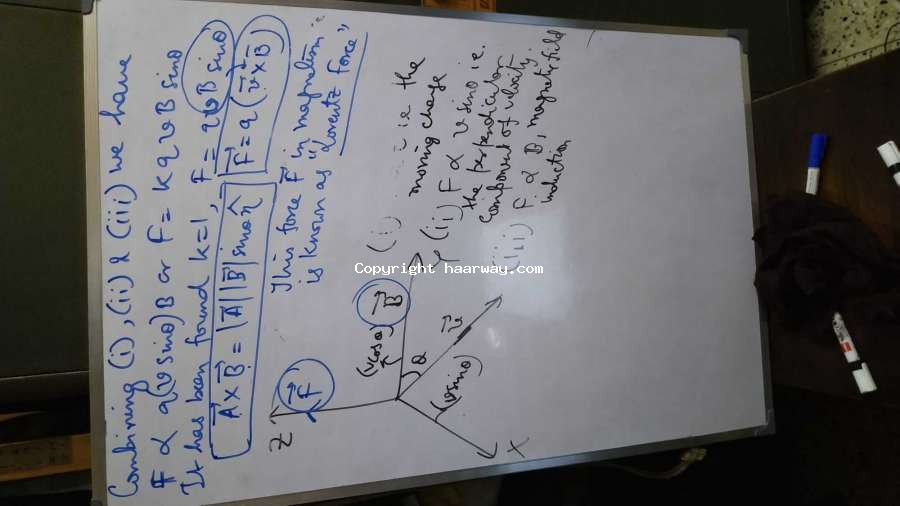 Combining (i), (ii) & (iii) we have
F ∝ q(v sinθ)B or F = K q v B sinθ
It has been found k=1, F = q v B sinθ
A⃗ × B⃗ = |A⃗||B⃗| sinθ n̂ F⃗ = q (v⃗ × B⃗)
This force F⃗ in magnetism is
is known as "Lorentz Force"
Z
F⃗
(vcosθ)
B⃗
Y
θ
v⃗
(vsinθ)
X
(i) i.e the
moving charge
(ii) F ∝ v sinθ i.e.
the perpendicular
component of velocity
(iii) F ∝ B, magnetic field
induction
Copyright haarway.com